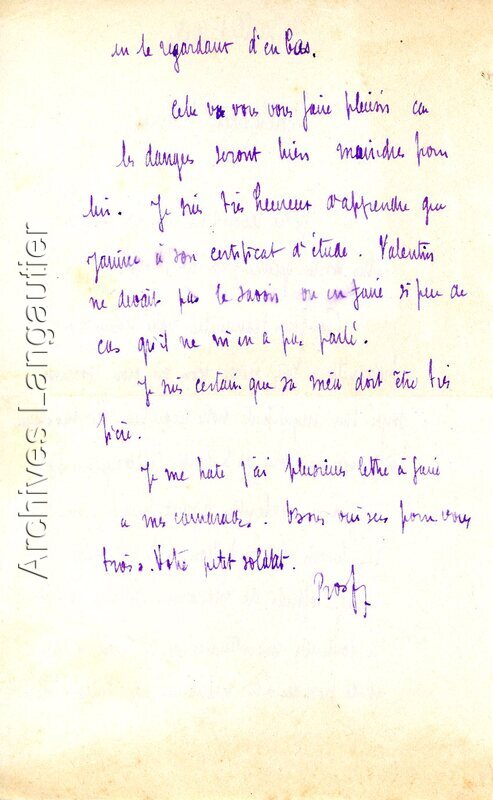 en le regardant d'en bas.
Cela va vous vous faire plaisir car
les dangers seront bien moindres pour
lui. Je suis très heureux d'apprendre que
Janine à son certificat d'étude. Valentin
ne devait pas le savoir ou en faire si peu de
cas qu'il ne m'en a pas parlé.
Je suis certain que sa mère doit être très
fière.
Je me hate j'ai plusieurs lettre à faire
a mes camarades. Bons baisers pour vous
trois. Votre petit soldat.
Archives Langautier